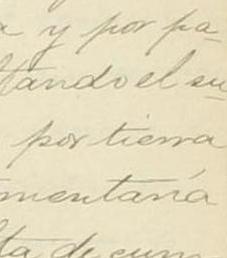 a y por pa-
ltando el su-
por tierra
mentaría
lta de cum